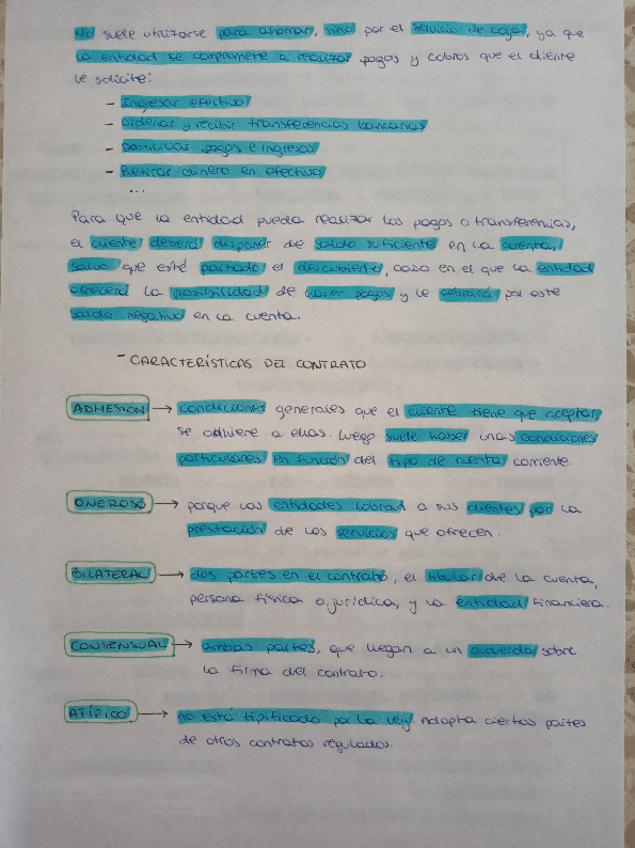 No suele utilizarse para ahorrar, sino por el servicio de caja, ya que
la entidad se compromete a realizar pagos y cobros que el cliente
le solicite:
- Ingresar efectivo
- Ordenar y recibir transferencias bancarias
- Domiciliar pagos e ingresos
- Retirar dinero en efectivo
...
Para que la entidad pueda realizar los pagos o transferencias,
el cliente deberá disponer de saldo suficiente en la cuenta,
salvo que esté pactado el descubierto, caso en el que la entidad
ofrecerá la posibilidad de hacer pagos y le cobrará por este
saldo negativo en la cuenta.
- CARACTERÍSTICAS DEL CONTRATO
ADHESIÓN → condiciones generales que el cliente tiene que aceptar,
se adhiere a ellas. Luego suele haber unas condiciones
particulares en función del tipo de cuenta corriente.
ONEROSO → porque las entidades cobran a sus clientes por la
prestación de los servicios que ofrecen.
BILATERAL → dos partes en el contrato, el titular de la cuenta,
persona física o jurídica, y la entidad financiera.
CONSENSUAL → ambas partes, que llegan a un acuerdo sobre
la firma del contrato.
ATÍPICO → no está tipificado por la ley. Adopta ciertas partes
de otros contratos regulados.